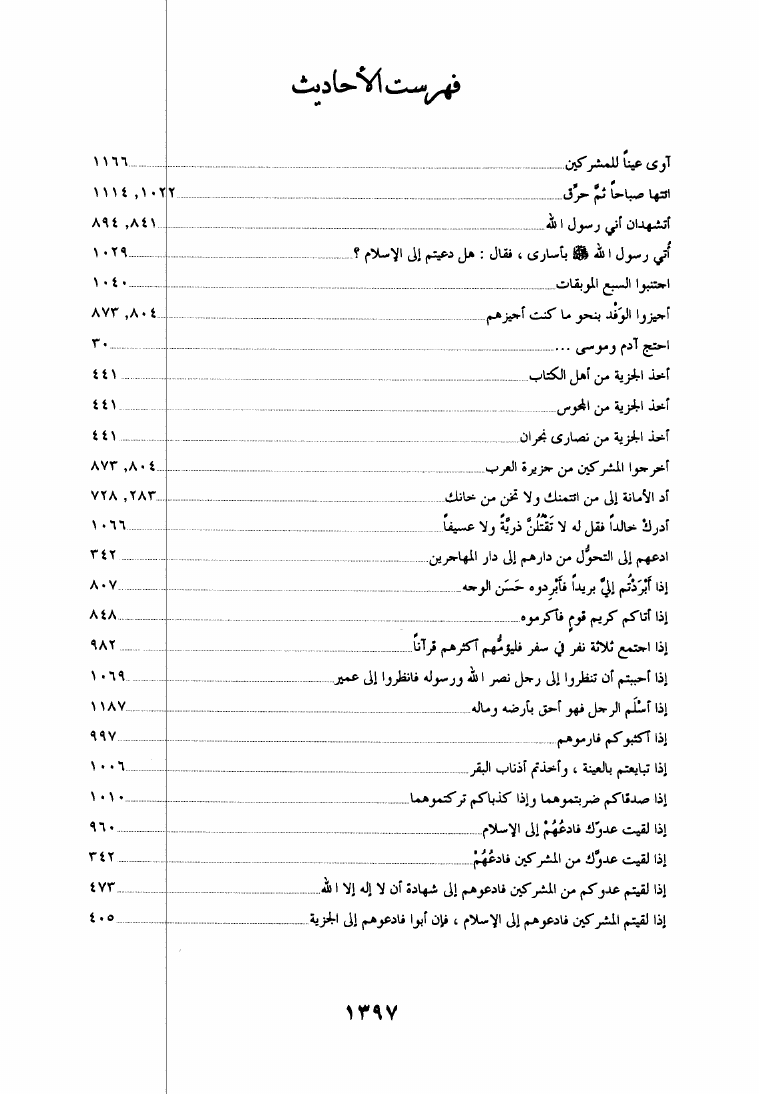 فهرست الأحاديث
آوى عيناً للمشركين ١١٦٦
ائتها صباحاً ثمَّ حرِّق ١٠٢٢, ١١١٤
أتشهدان أني رسول الله ٨٤١, ٨٩٤
أُتي رسول الله ﷺ بأسارى ، فقال : هل دعيتم إلى الإسلام ؟ ١٠٢٩
اجتنبوا السبع الموبقات ١٠٤٠
أجيزوا الوَفْد بنحو ما كنت أجيزهم ٨٠٤, ٨٧٣
احتج آدم وموسى ... ٣٠
أخذ الجزية من أهل الكتاب ٤٤١
أخذ الجزية من المجوس ٤٤١
أخذ الجزية من نصارى نجران ٤٤١
أخرجوا المشركين من جزيرة العرب ٨٠٤, ٨٧٣
أد الأمانة إلى من ائتمنك ولا تخن من خانك ٢٨٣, ٧٢٨
أدركْ خالداً فقل له لا تَقْتُلَنَّ ذريَّةً ولا عسيفاً ١٠٦٦
ادعهم إلى التحوُّل من دارهم إلى دار المهاجرين ٣٤٢
إذا أَبْرَدْتُم إليَّ بريداً فأَبْرِدوه حَسَن الوجه ٨٠٧
إذا أتاكم كريم قومٍ فأكرموه ٨٤٨
إذا اجتمع ثلاثة نفر في سفر فليؤمُّهم أكثرهم قرآناً ٩٨٢
إذا أحببتم أن تنظروا إلى رجل نصر الله ورسوله فانظروا إلى عمير ١٠٦٩
إذا أسْلَم الرجل فهو أحق بأرضه وماله ١١٨٧
إذا أكثبوكم فارموهم ٩٩٧
إذا تبايعتم بالعينة ، وأخذتم أذناب البقر ١٠٠٦
إذا صدقاكم ضربتموهما وإذا كذباكم تركتموهما ١٠١٠
إذا لقيت عدوّك فادعُهُمْ إلى الإسلام ٩٦٠
إذا لقيت عدوَّك من المشركين فادعُهُمْ ٣٤٢
إذا لقيتم عدوكم من المشركين فادعوهم إلى شهادة أن لا إله إلا الله ٤٧٣
إذا لقيتم المشركين فادعوهم إلى الإسلام ، فإن أبوا فادعوهم إلى الجزية ٤٠٥
١٣٩٧